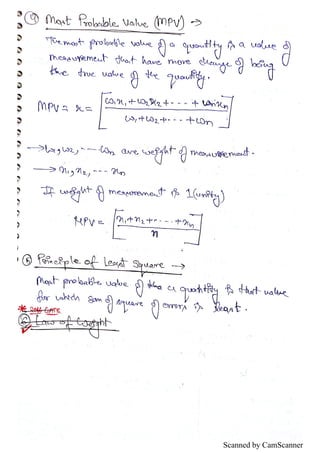 ⑨ Most Probable Value (MPV) →
The most probable value of a quantity is a value of
measurement that have more chance of being
the true value of the quantity.
MPV = x = [ω₁x₁ + ω₂x₂ + - - - + ωnxn / ω₁ + ω₂ + - - - + ωn]
→ ω₁, ω₂, - - - ωn are weight of measurement.
→ x₁, x₂, - - - xn
If weight of measurement is 1 (unity)
MPV = [x₁ + x₂ + - - - + xn / n]
Principle of Least Square →
Most probable value of the a quantity is that value
for which sum of square of errors is least.
GATE
Law of Weight
Scanned by CamScanner